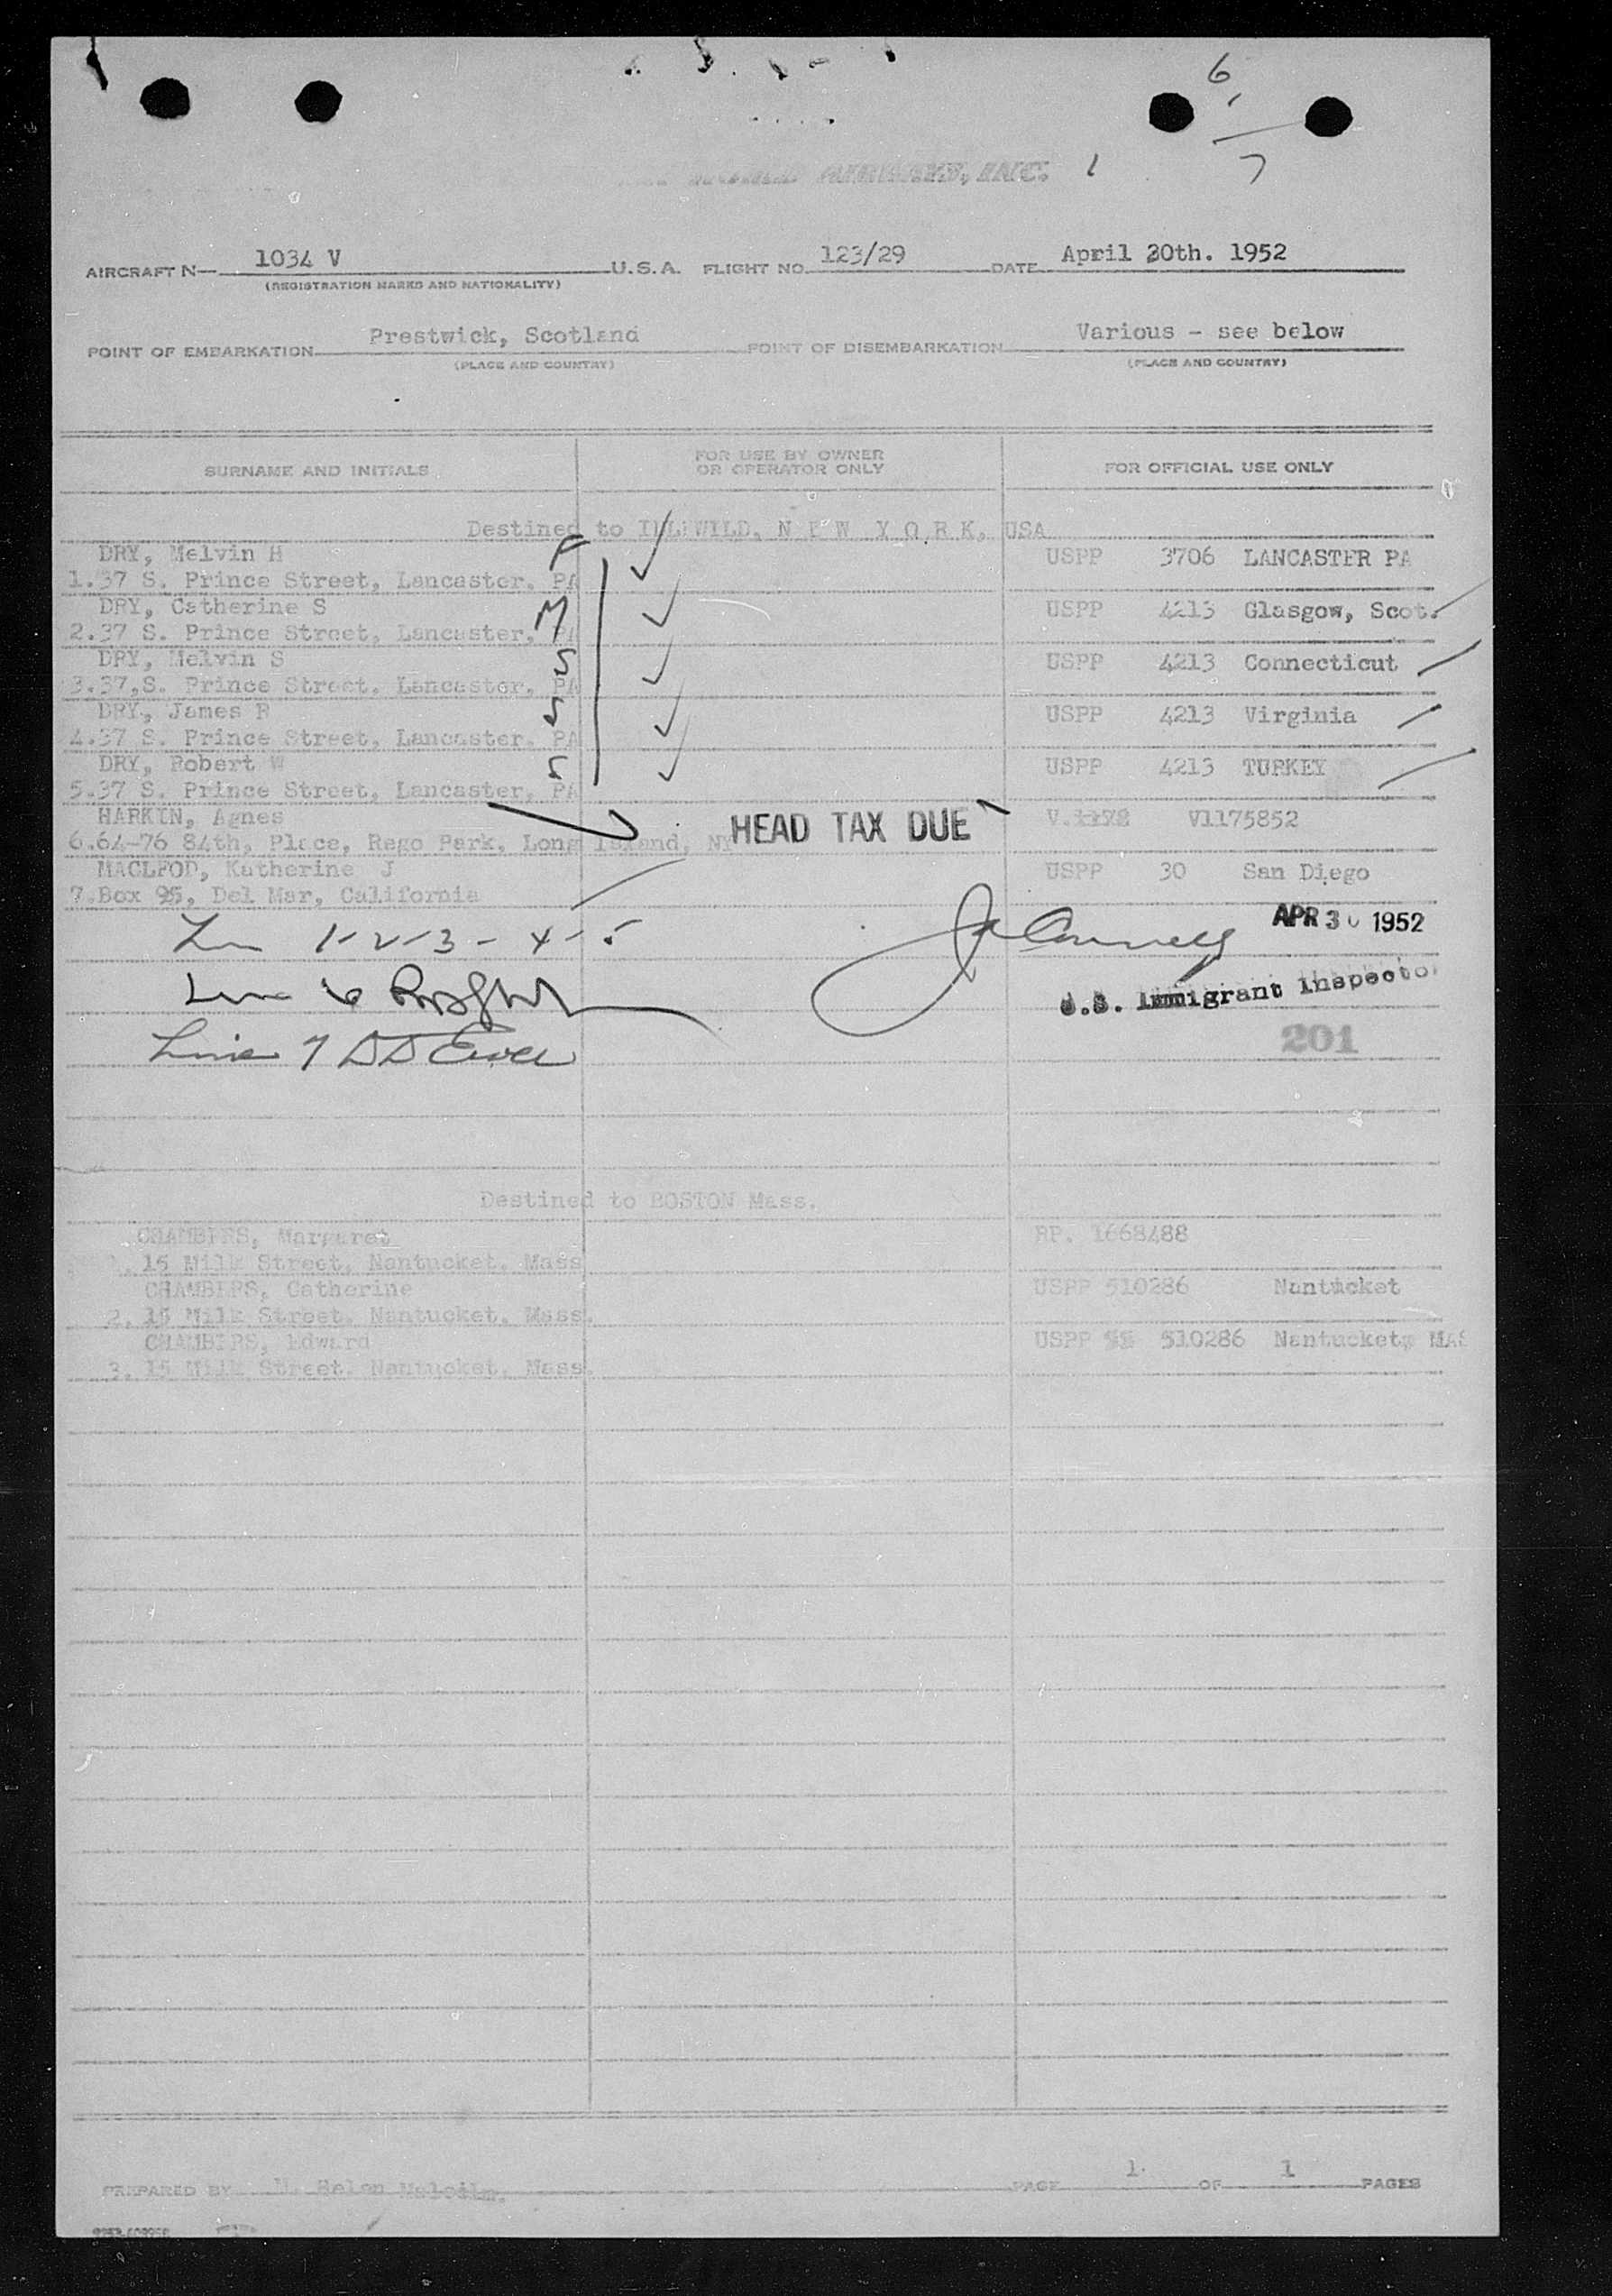 6
7
WORLD AIRWAYS, INC. 1
AIRCRAFT N— 1034 V U.S.A. FLIGHT NO. 123/29 DATE April 30th. 1952
(REGISTRATION MARKS AND NATIONALITY)
POINT OF EMBARKATION Prestwick, Scotland POINT OF DISEMBARKATION Various - see below
(PLACE AND COUNTRY) (PLACE AND COUNTRY)
SURNAME AND INITIALS FOR USE BY OWNER OR OPERATOR ONLY FOR OFFICIAL USE ONLY
Destined to IDLEWILD, N E W Y O R K, USA
DRY, Melvin H F USPP 3706 LANCASTER PA
1.37 S. Prince Street, Lancaster. PA
DRY, Catherine S M USPP 4213 Glasgow, Scot.
2.37 S. Prince Street, Lancaster, PA
DRY, Melvin S S USPP 4213 Connecticut
3.37,S. Prince Street. Lancaster, PA
DRY, James R S USPP 4213 Virginia
4.37 S. Prince Street, Lancaster. PA
DRY, Robert W S USPP 4213 TURKEY
5.37 S. Prince Street, Lancaster, PA
HARKIN, Agnes HEAD TAX DUE V. V1175852
6.64-76 84th, Place, Rego Park, Long Island, NY
MACLEOD, Katherine J USPP 30 San Diego
7.Box 95, Del Mar, California
1-2-3-4-5 APR 30 1952
Line 6
U.S. Immigrant Inspector
Line 7
201
Destined to BOSTON Mass.
CHAMBERS, Margaret RP. 1668488
1. 15 Milk Street, Nantucket. Mass
CHAMBERS, Catherine USPP 510286 Nantucket
2. 15 Milk Street. Nantucket. Mass.
CHAMBERS, Edward USPP 510286 Nantucket, MAS
3. 15 Milk Street. Nantucket, Mass.
PREPARED BY Helen Malcolm. PAGE 1. OF 1 PAGES